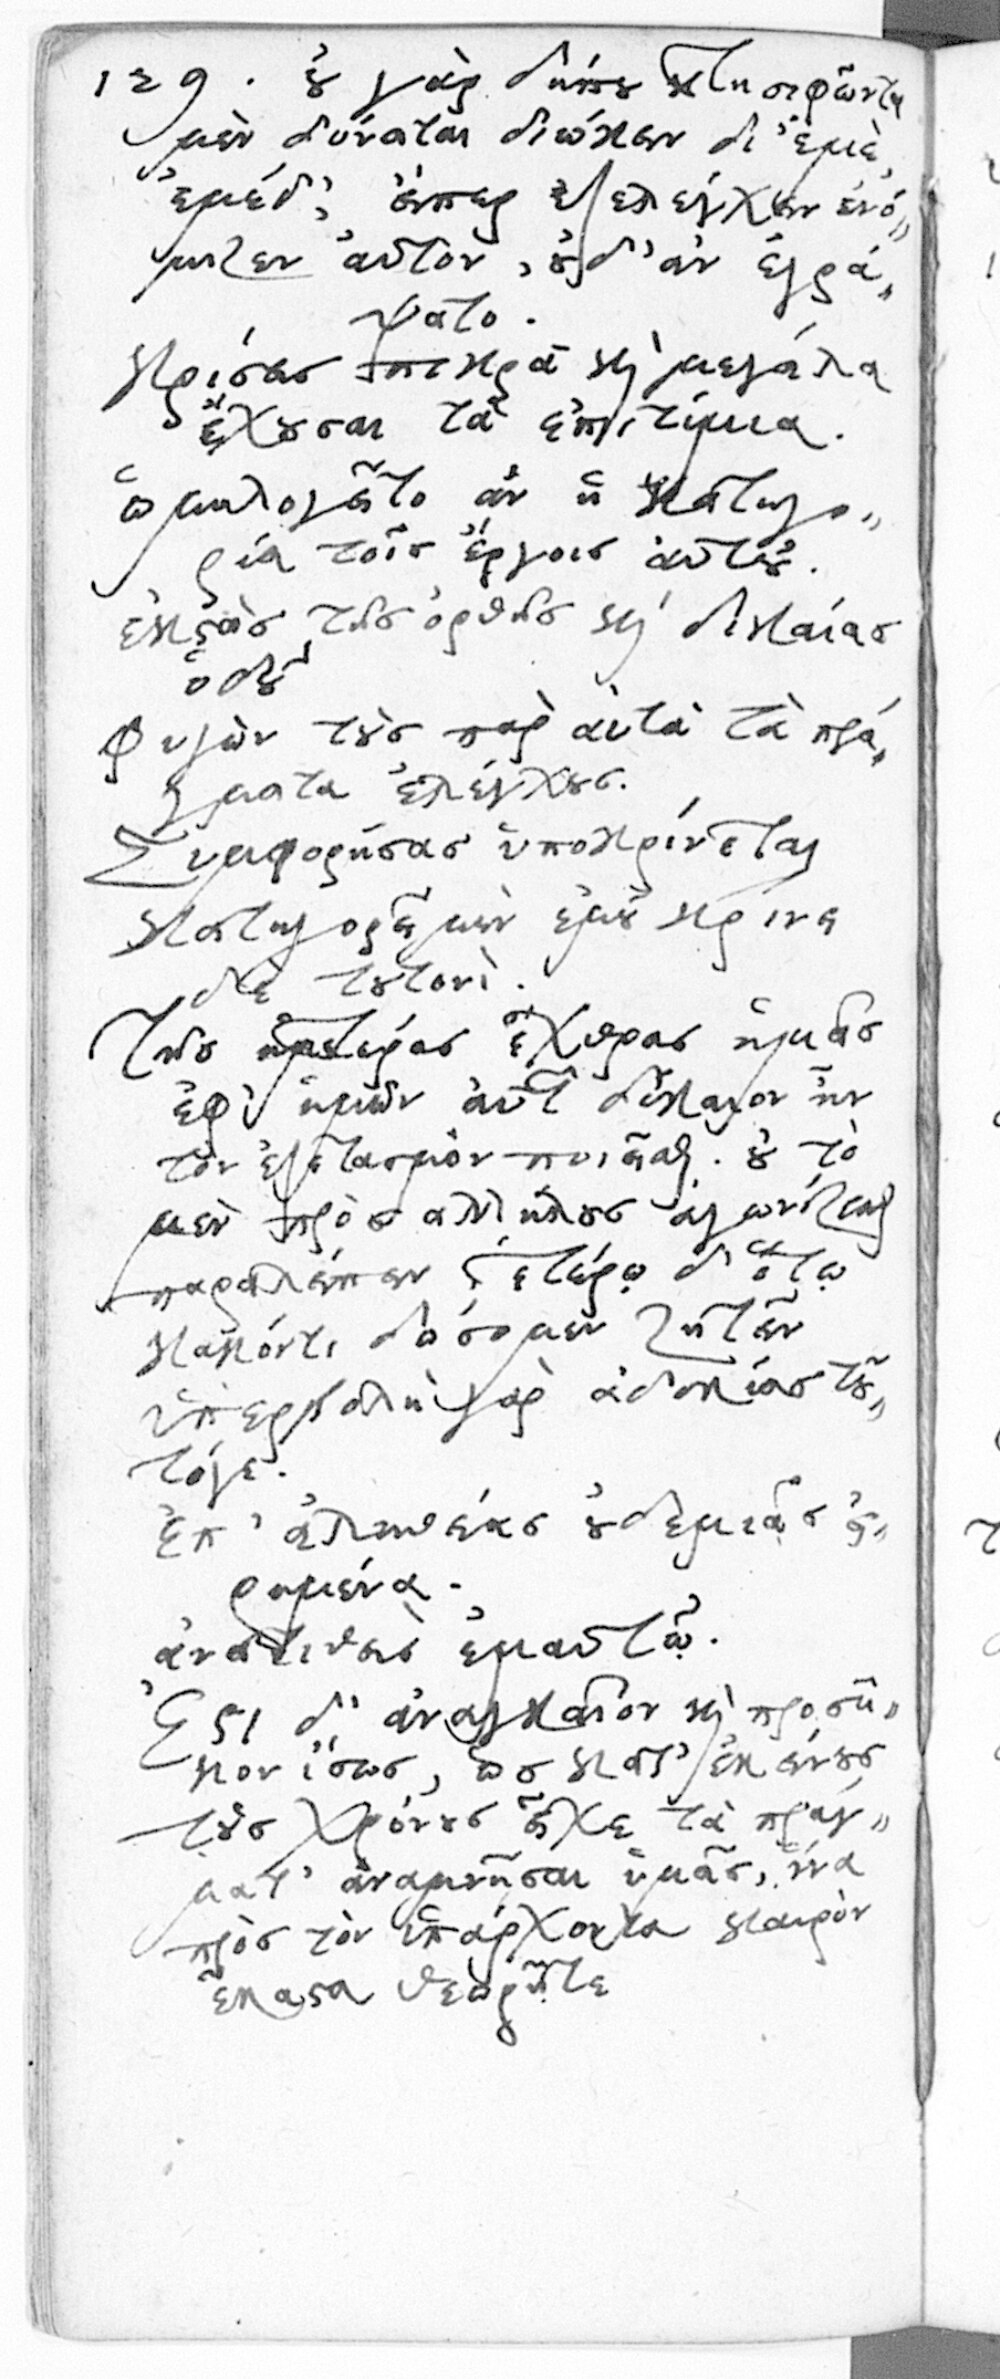 129. ȣ̓ γὰρ δήπȣ Κτησιφῶντα
μὲν δύναται διώκειν δι' ἐμὲ,
ἐμὲ δ', εἴπερ ἐξελέγχειν ἐνό„
μιζεν αὐτὸν, ȣ̓δ' ἂν ἐγρά„
ψατο.
κρίσεις πικρὰ καὶ μεγάλα
ἔχȣσαι τὰ ἐπιτίμια.
ὡμολογεῖτο ἂν ἡ κατηγο„
ρία τοῖς ἔργοις αὐτȣ͂.
ἐκϛὰς τῆς ὀρθῆς καὶ δικαίας
ὁδȣ͂
Φυγὼν τȣ̀ς παρ' αὐτὰ τὰ πρά„
γματα ἐλέγχȣς.
Συμφορήσας ὑποκρίνεται
κατηγορεῖ μὲν ἐμȣ͂ κρίνει
δὲ τȣτονὶ.
Τῆς ἡμετέρας ἔχθρας ἡμᾶς
ἐφ' ἡμῶν αὐτῶν δίκαιον ἦν
τὸν ἐξετασμὸν ποιεῖσθαι. ȣ̓ τὸ
μὲν πρὸς ἀλλήλȣς ἀγωνίζεσθαι
παραλείπειν, ἑτέρῳ δ' ὅτῳ
κακόν τι δώσομεν ζητεῖν
ὑπερβολὴ γὰρ ἀδικίας τȣ͂„
τόγε.
ἐπ' ἀληθείας ȣ̓δεμιᾶς εἰ„
ρημένα.
ἀνατιθεὶς ἐμαυτῷ.
Ἔϛι δ' ἀναγκαῖον καὶ προσῆ„
κον ἴσως, ὡς κατ' ἐκείνȣς
τȣ̀ς χρόνȣς εἶχε τὰ πράγ„
ματ' ἀναμνῆσαι ὑμᾶς, ἵνα
πρὸς τὸν ὑπάρχοντα καιρὸν
ἕκαϛα θεωρῆτε